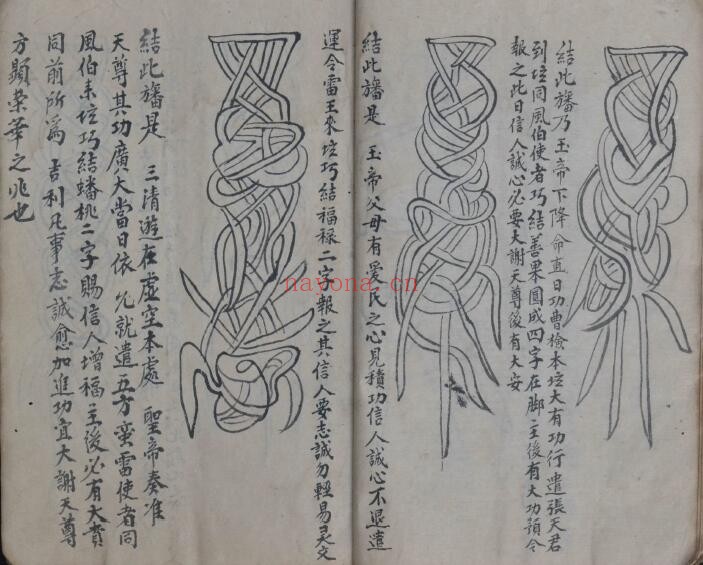 結此旛乃玉帝下降命直日功曹檢本坛大有功行遣張天君
到坛同風伯使者巧結善果圓成四字在脚主後有大功預令
報之此日信人誠心必要大謝天尊後有大安
結此旛是 玉帝父母有爱民之心見積功信人誠心不退遣
運令雷王來坛巧結福禄二字報之其信人要志誠勿輕易灵文
結此旛是 三清遊在虛空本處 聖帝奏准
天尊其功廣大當日依允就遣五方蛮雷使者同
風伯来坛巧結蟠桃二字賜信人增福主後必有大貴
同前所爲 吉利凡事志誠愈加進功宜大謝天尊
方顯荣華之兆也
nayona.cn